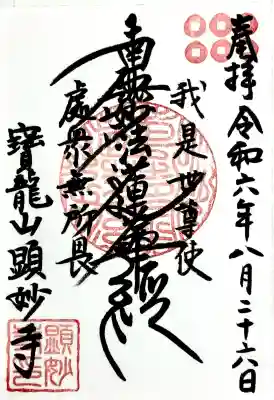 奉拝 令和六年八月二十六日
我是世尊使
南無妙法蓮華経
處衆無所畏
寶龍山 顕妙寺